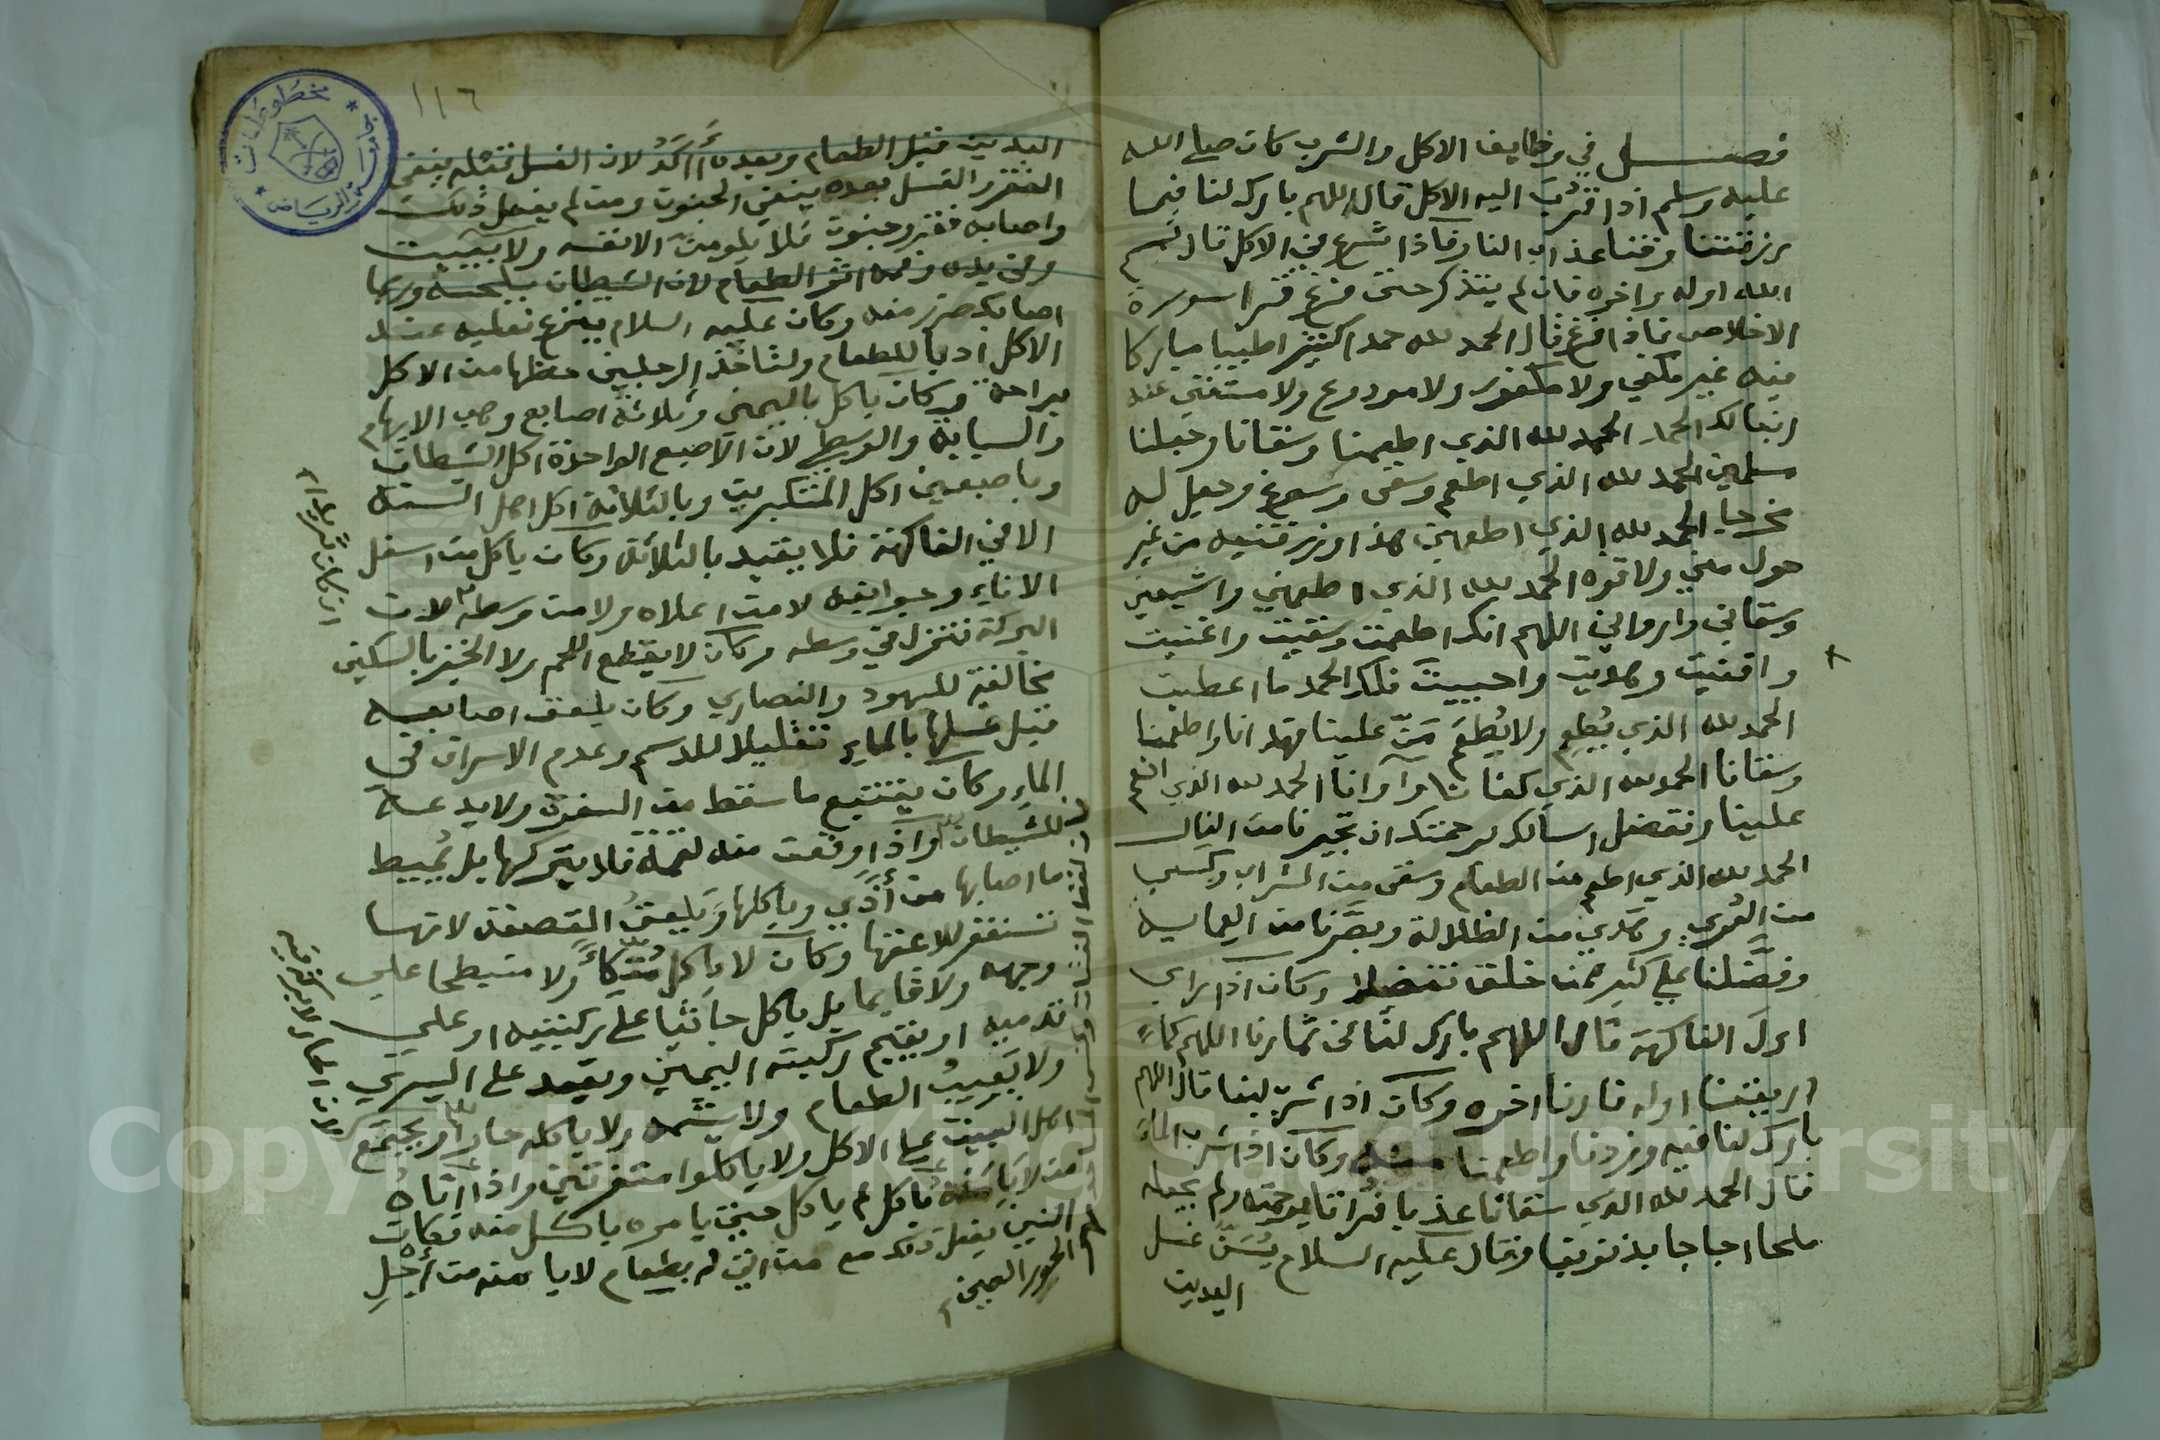 فصل في وظايف الاكل والشرب كان صلي الله
عليه وسلم اذا قرب اليه الاكل قال اللهم بارك لنا فيما
رزقتنا وقنا عذاب النار فاذا شرع في الاكل قال بسم
الله اوله واخره فان لم يتذكر حتى فرغ قرا سورة
الاخلاص فاذا فرغ قال الحمد لله حمدا كثيرا طيبا مباركا
فيه غير مكفي ولا مكفور ولا مودوع ولا مستغنى عنه
ربنا لك الحمد الحمد لله الذي اطعمنا وسقانا وجعلنا
مسلمين الحمد لله الذي اطعم وسقى وسوغ وجعل له
مخرجا الحمد لله الذي اطعمني هذا ورزقنيه من غير
حول مني ولا قوه الحمد لله الذي اطعمني واشبعني
وسقاني وارواني اللهم انك اطعمت وسقيت واغنيت
واقنيت وهديت واحييت فلك الحمد ما اعطيت
الحمد لله الذي يُطعِم ولا يُطعَم مَنّ علينا فهدانا واطعمنا
وسقانا الحمد لله الذي كفانا وآوانا الحمد لله الذي انعم
علينا وتفضل اسالك برحمتك ان تجيرنا من النار
الحمد لله الذي اطعم من الطعام وسقى من الشراب وكسى
من العُرى وهدى من الظلالة وبصّرنا من العمايه
وفضّلنا على كثير ممن خلق تفضيلا وكان اذا راى
اول الفاكهة قال اللهم بارك لنا في ثمارنا اللهم كما
اريتنا اوله فارنا اخره وكان اذا شرب لبنا قال اللهم
بارك لنا فيه وزدنا واطعمنا منه وكان اذا شرب الماء
قال الحمد لله الذي سقانا عذبا فراتا برحمته ولم يجعله
ملحا اجاجا بذنوبنا وقال عليه السلام يُسَنّ غسل
اليدين
١١٦
مخطوطات
اليدين قبل الطعام وبعده آكَدُ لان الغسل قبله ينفي
الفقر والغسل بعده ينفي الجنون ومن لم يفعل ذلك
واصابه فقر وجنون فلا يلومن الا نفسه ولا يبيت
وفي يده وفمه اثر الطعام لان الشيطان يلحسه وربما
اصابك ضرر منه وكان عليه السلام ينزع نعليه عند
الاكل ادبا للطعام ولتاخذ الرجلين حظها من الاكل
براحة وكان ياكل باليمنى وثلاثة اصابع وهي الابهام
والسبابة والوسطى لان الاصبع الواحدة اكل الشيطان
وباصبعين اكل المتكبرين وبالثلاثة اكل اهل السنة
الا في الفاكهة فلا يقيد بالثلاثة وكان ياكل من اسفل
الاناء وجوانبه لا من اعلاه ولا من وسطه لان
البركة تنزل في وسطه وكان لا يقطع اللحم ولا الخبز بالسكين
مخالفة لليهود والنصارى وكان يلعق اصابعه
قبل غسلها بالماء تقليلا للدسم وعدم الاسراف في
الماء وكان يتتبع ما سقط من السفرة ولا يدعه
للشيطان واذا وقعت منه لقمة فلا يتركها بل يُميط
ما اصابها من أذًى وياكلها ويلعق القصعة لانها
تستغفر للاعقها وكان لا ياكل متكاً ولا منبطحا على
وجهه ولا قايما بل ياكل جاثيا على ركبتيه او على
قدميه او يقيم ركبته اليمنى ويقعد على اليسرى
ولا يَعيبُ الطعام ولا يشمه ولا ياكله حارا ويجتمع
اهل البيت على الاكل ولا ياكلوا متفرقين واذا اتاه
من لا يامنه باكل لم ياكل حتى يامره ياكل منه فكان
النبي يفعل ذلك مع من اتى له بطعام لا يامنه من أجْلِ